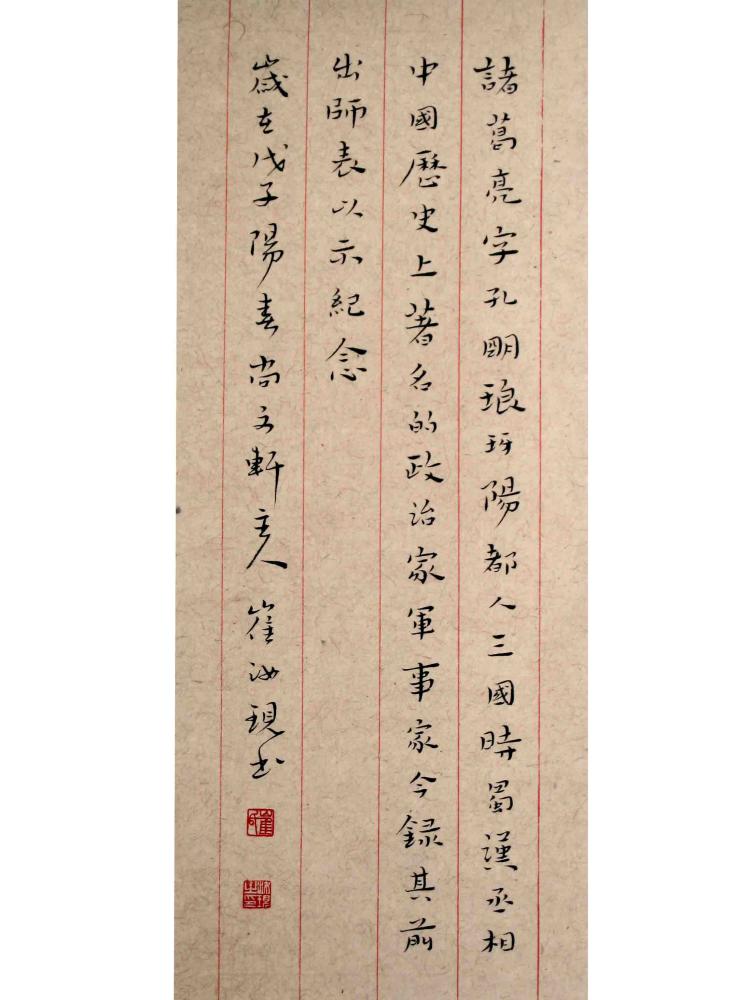 諸葛亮字孔明琅玡陽都人三國時蜀漢丞相
中國歷史上著名的政治家軍事家今録其前
出師表以示紀念
歲在戊子陽春尚文軒主人崔汝現書